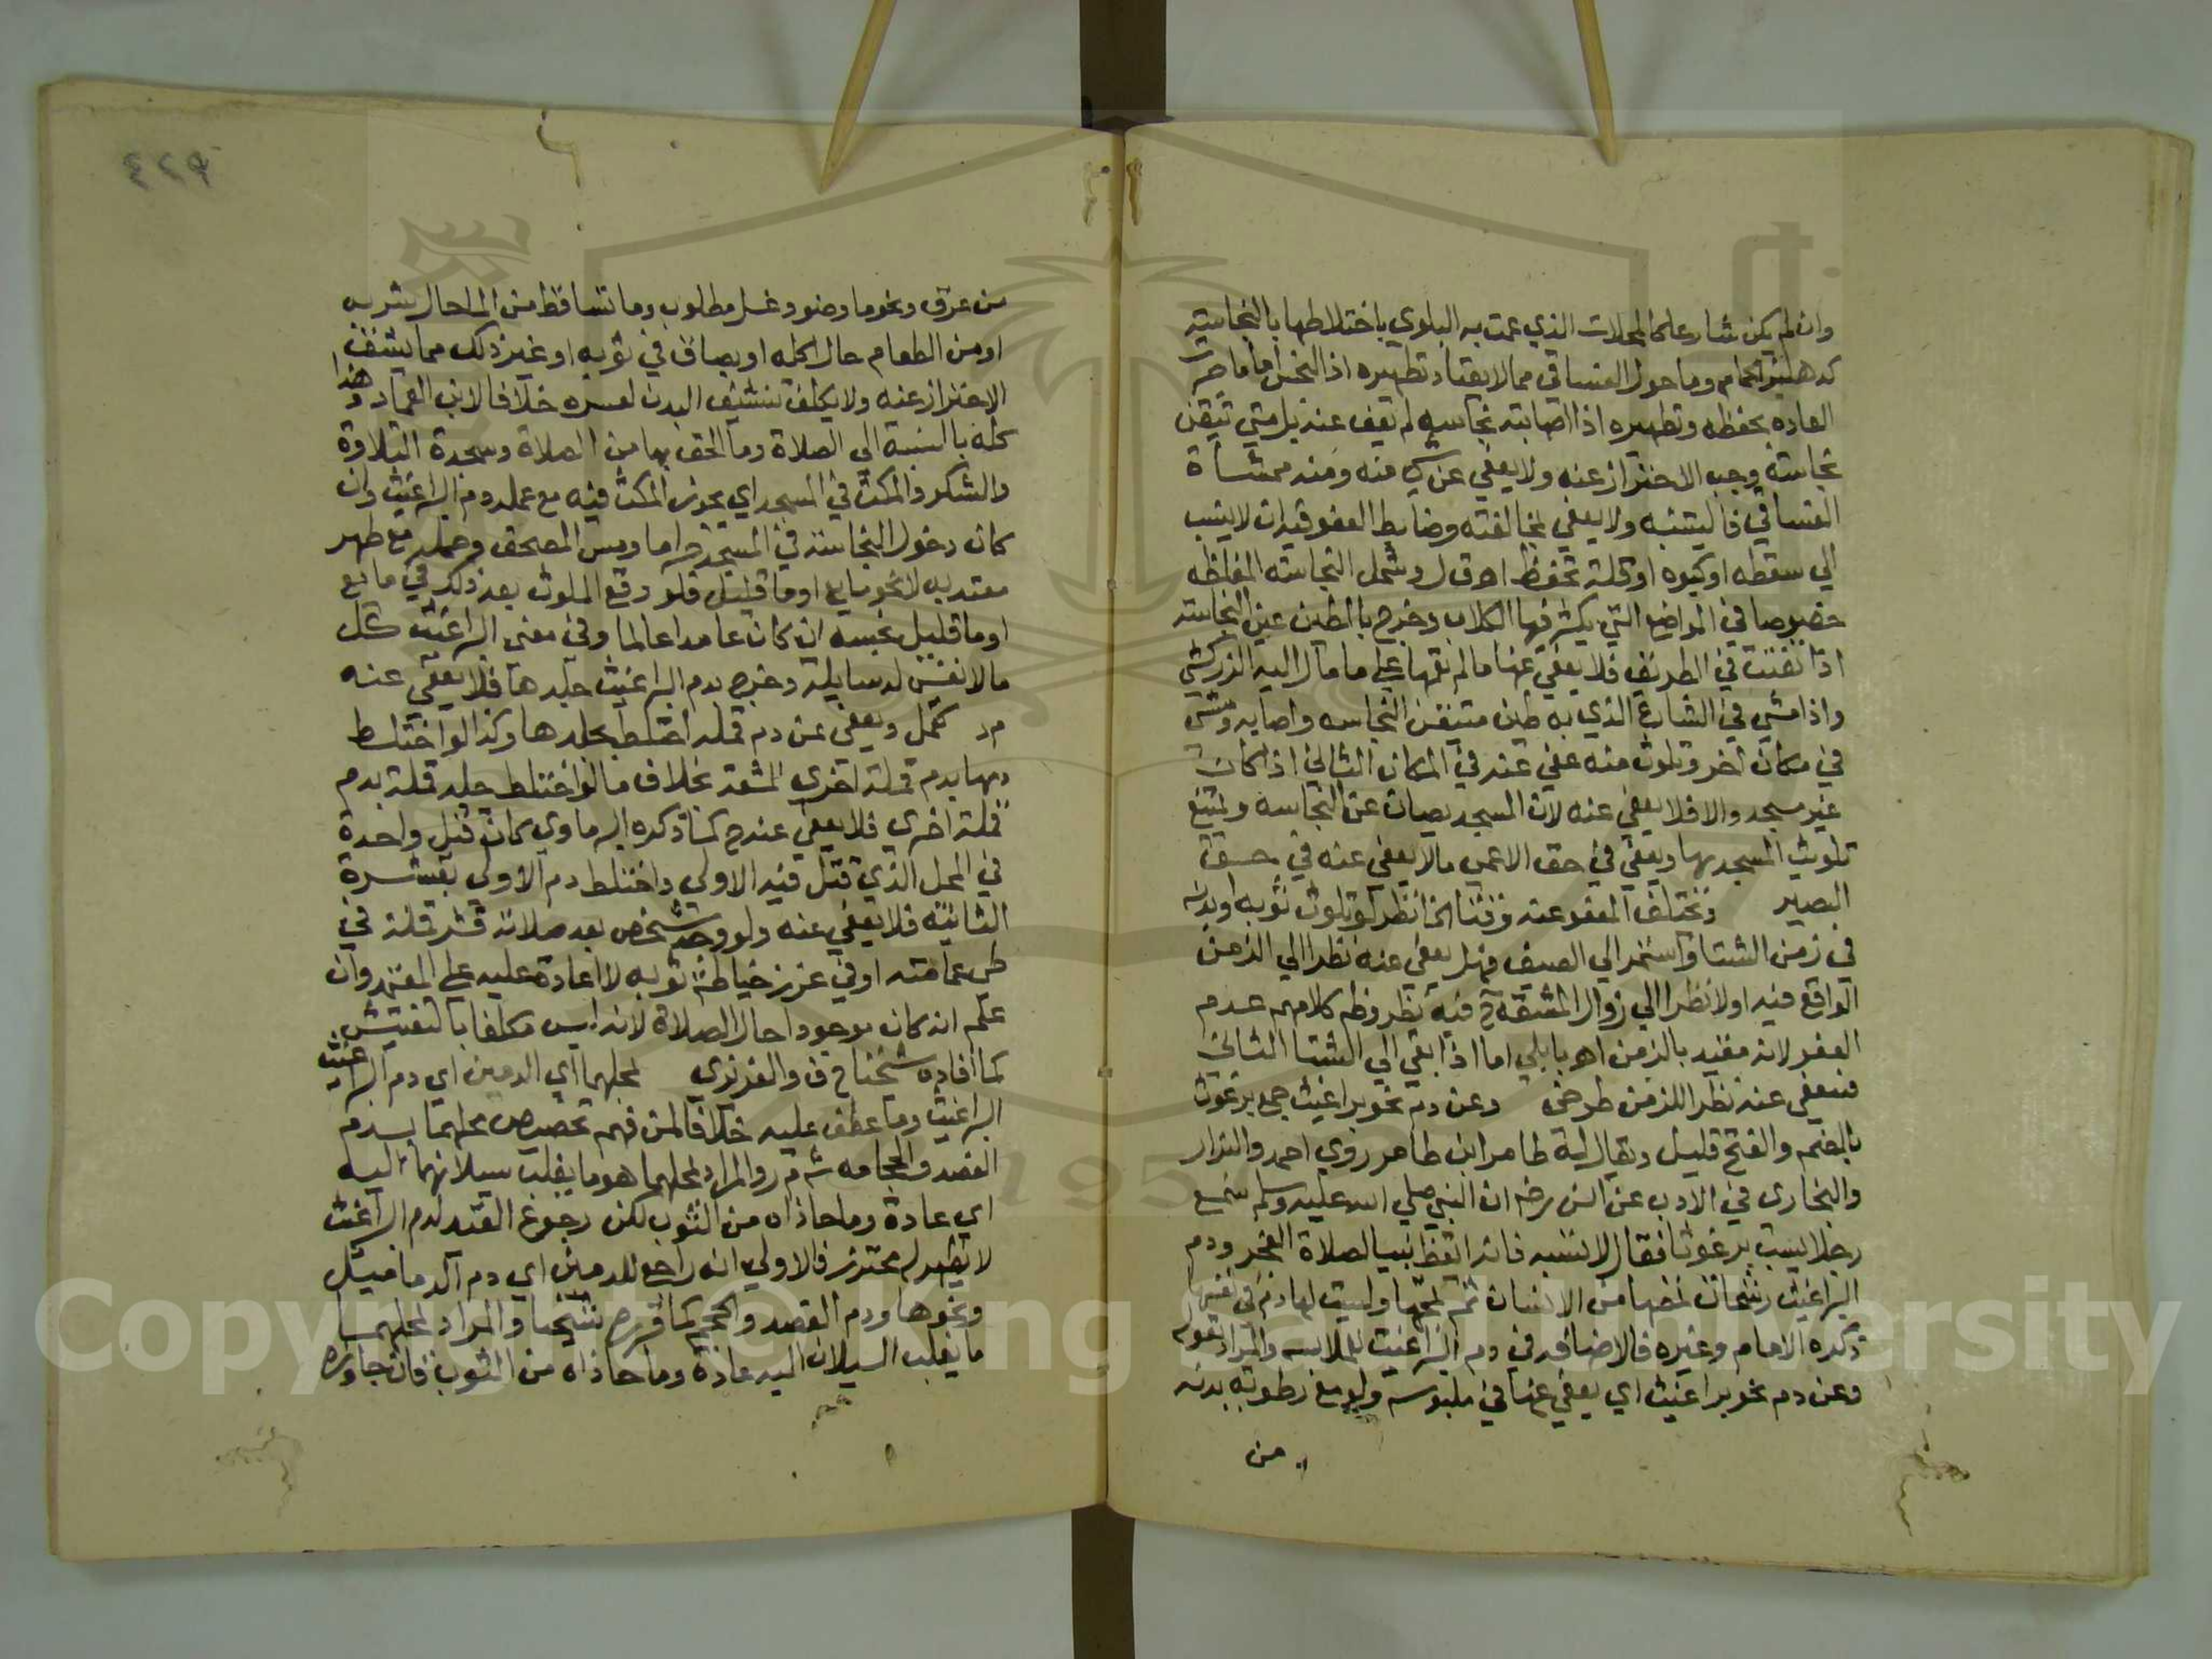 وان لم يكن شارعا كالمحلات الذي عمت به البلوي باختلاطها بالنجاسة
كدهليز الحمام وما حول الفساقي مما لا يعتاد تطهيره اذا تنجس اما ما جرت
العاده بحفظه وتطهيره اذا اصابته نجاسه لم يعف عنه بل متي تيقن
نجاسته وجب الاحتراز عنه ولا يعفي عن شي منه ومنه ممشاة
الفساقي فاليتنبه ولا يعفي لمخالفته وضابط العفو قيد ان لا ينسب
الي سقطه او كبوه او قلة تحفظ اه ق ل وشمل النجاسه المغلظه
خصوصا في المواضع التي يكثر فيها الكلاب وخرج بالطين عين النجاسة
اذا تفتتت في الطريق فلا يعفي عنها ما لم تعمها علي ما مال اليه الزركشي
واذا مشي في الشارع الذي به طين متيقن النجاسه واصابه ومشي
في مكان اخر وتلوث منه عفي عنه في المكان الثاني اذا كان
غير مسجد والا فلا يعفي عنه لان المسجد يصان عن النجاسه ويمتنع
تلويث المسجد بها ويعفي في حق الاعمي مالا يعفي عنه في حق
البصير ويختلف المعفو عنه وقتا الخ انظر لو تلوث ثوبه او بدنه
في زمن الشتا واستمر الي الصيف فهل يعفي عنه نظرا الي الزمن
الواقع فيه اولا نظرا الي زوال المشقة ح فيه نظر وظ كلامهم عدم
العفو لانه مقيد بالزمن اه بابلي اما اذا بقي الي الشتا الثاني
فيعفي عنه نظرا للزمن طوخي وعن دم نحو براغيث جمع برغوث
بالضم والفتح قليل ويقال له طامر ابن طامر روي احمد والبزار
والبخاري في الادب عن انس رضه ان النبي صلي الله عليه وسلم سمع
رجلا يسب برغوثا فقال لا تسبه فانه ايقظ نبيا لصلاة الفجر ودم
البراغيث رشحات تمصها من الانسان ثم تمجها وليست لها دم في نفسها
ذكره الامام وغيره فالاضافه في دم البراغيث للملابسه والمراد بقوله
وعن دم نحو براغيث اي يعفي عنها في ملبوسه ولو مع رطوبة بدنه
من
٤٢٩
من عرق ونحو ما وضو وغسل مطلوب وما تساقط من الما حال شربه
او من الطعام حال اكله او بصاق في ثوبه او غير ذلك مما يشق
الاحتراز عنه ولا يكلف تنشيف البدن لعسره خلافا لابن العماد وهذا
كله بالنسبة الي الصلاة وما الحق بها من الصلاة وسجدة التلاوة
والشكر والمكث في المسجد اي يجوز المكث فيه مع عمله دم البراغيث وان
كان دخول النجاسة في المسجد حراما ومس المصحف وحمله مع طهر
معتد به لا نحو مايع او ما قليل فلو وقع الملوث بعد ذلك في مايع
او ما قليل نجسه ان كان عامدا عالما وفي معني البراغيث كل
مالا نفس له سايلة وخرج بدم البراغيث جلدها فلا يعفي عنه
م د كقمل ويعفي عن دم قمله اختلط بجلدها وكذا لو اختلط
دمها بدم قملة اخري للمشقة بخلاف ما لو اختلط جلد قملة بدم
قملة اخري فلا يعفي عنه ح كما ذكره البرماوي كان قتل واحدة
في المحل الذي قتل فيه الاولي واختلط دم الاولي بقشرة
الثانيه فلا يعفي عنه ولو وجد شخص بعد صلاته قشر قملة في
طي عمامته او في غرز خياطة ثوبه لا اعادة عليه علي المعتمد وان
علم انه كان موجودا حال الصلاة لانه ليس مكلفا بالتفتيش
كما افاده شيخنا ح ف والعزيزي لمحلهما اي الدمين اي دم البراغيث
البراغيث وما عطف عليه خلافا لمن فهم تخصيص محلهما بدم
الفصد والحجامه ش م ر والمراد بمحلهما هو ما يغلب سيلانهما اليه
اي عادة وما حاذاه من الثوب لكن رجوع القيد لدم البراغيث
لا يظهر له محترز فالاولي انه راجع للدمين اي دم الدماميل
ونحوها ودم الفصد والحجم كما قرره شيخنا والمراد بمحلهما
ما يغلب السيلان اليه عادة وما حاذاه من الثوب فان جاوزه